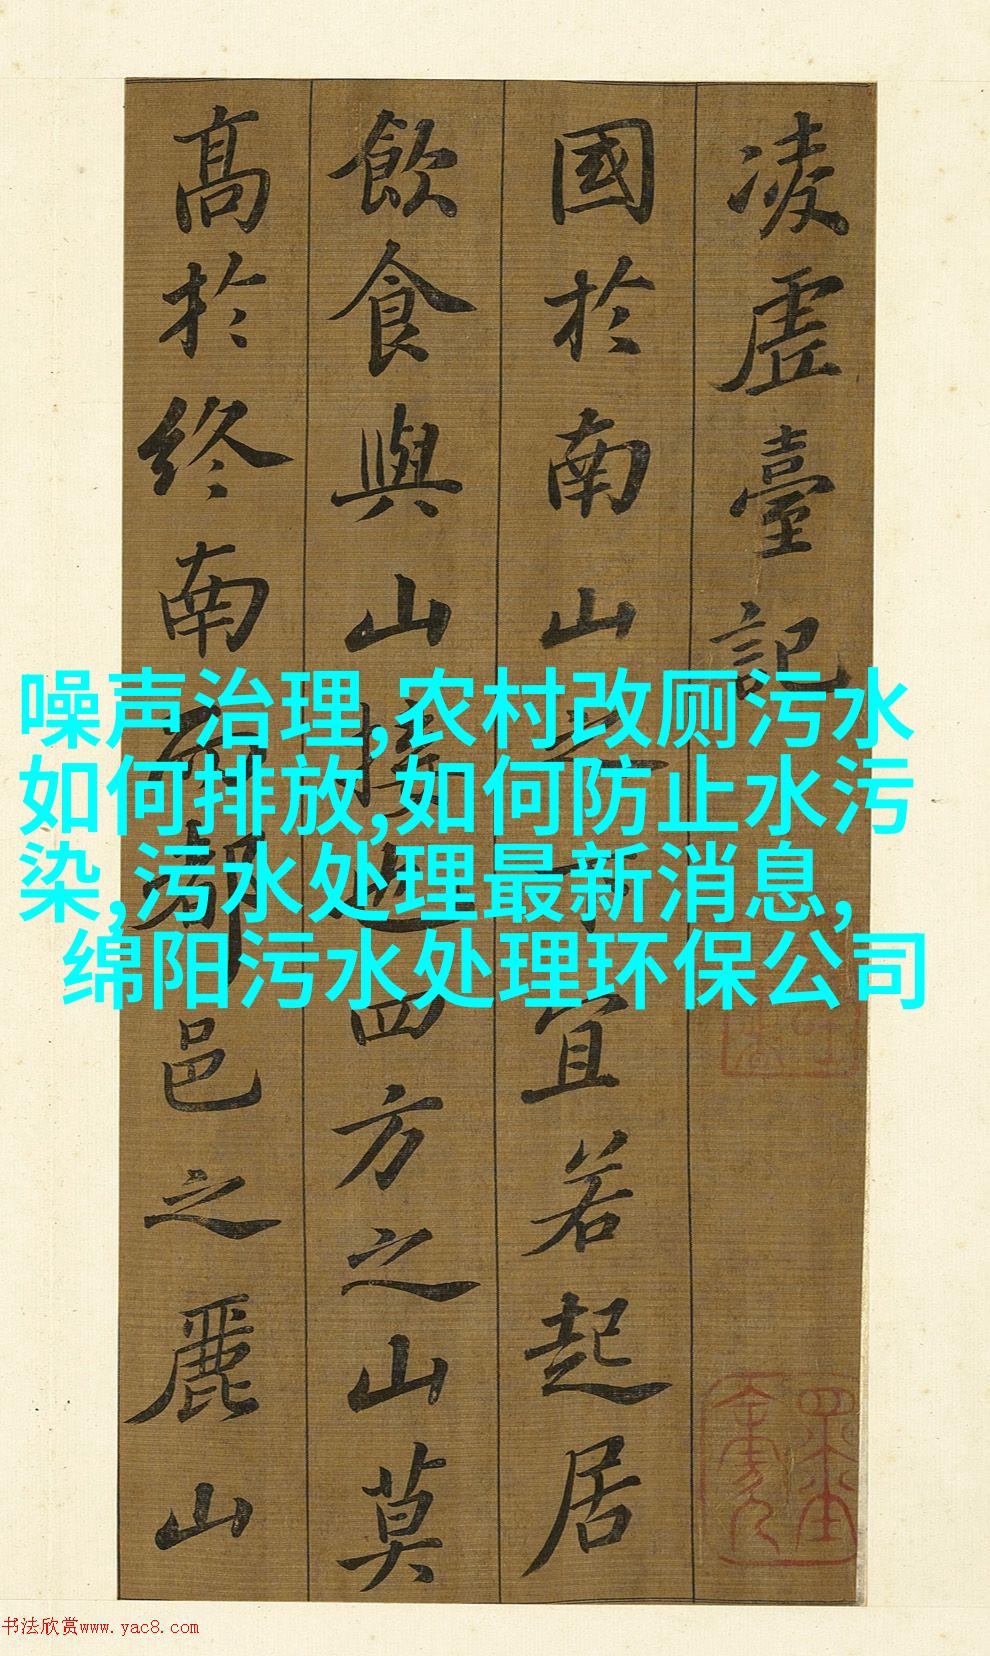 凌虛臺記
國於南山之下宜若起居
飲食與山接也四方之山莫
高於終南而都邑之麗山
噪声治理,农村改厕污水
如何排放,如何防止水污
染,污水处理最新消息,
绵阳污水处理环保公司
书法欣赏www.yac8.com